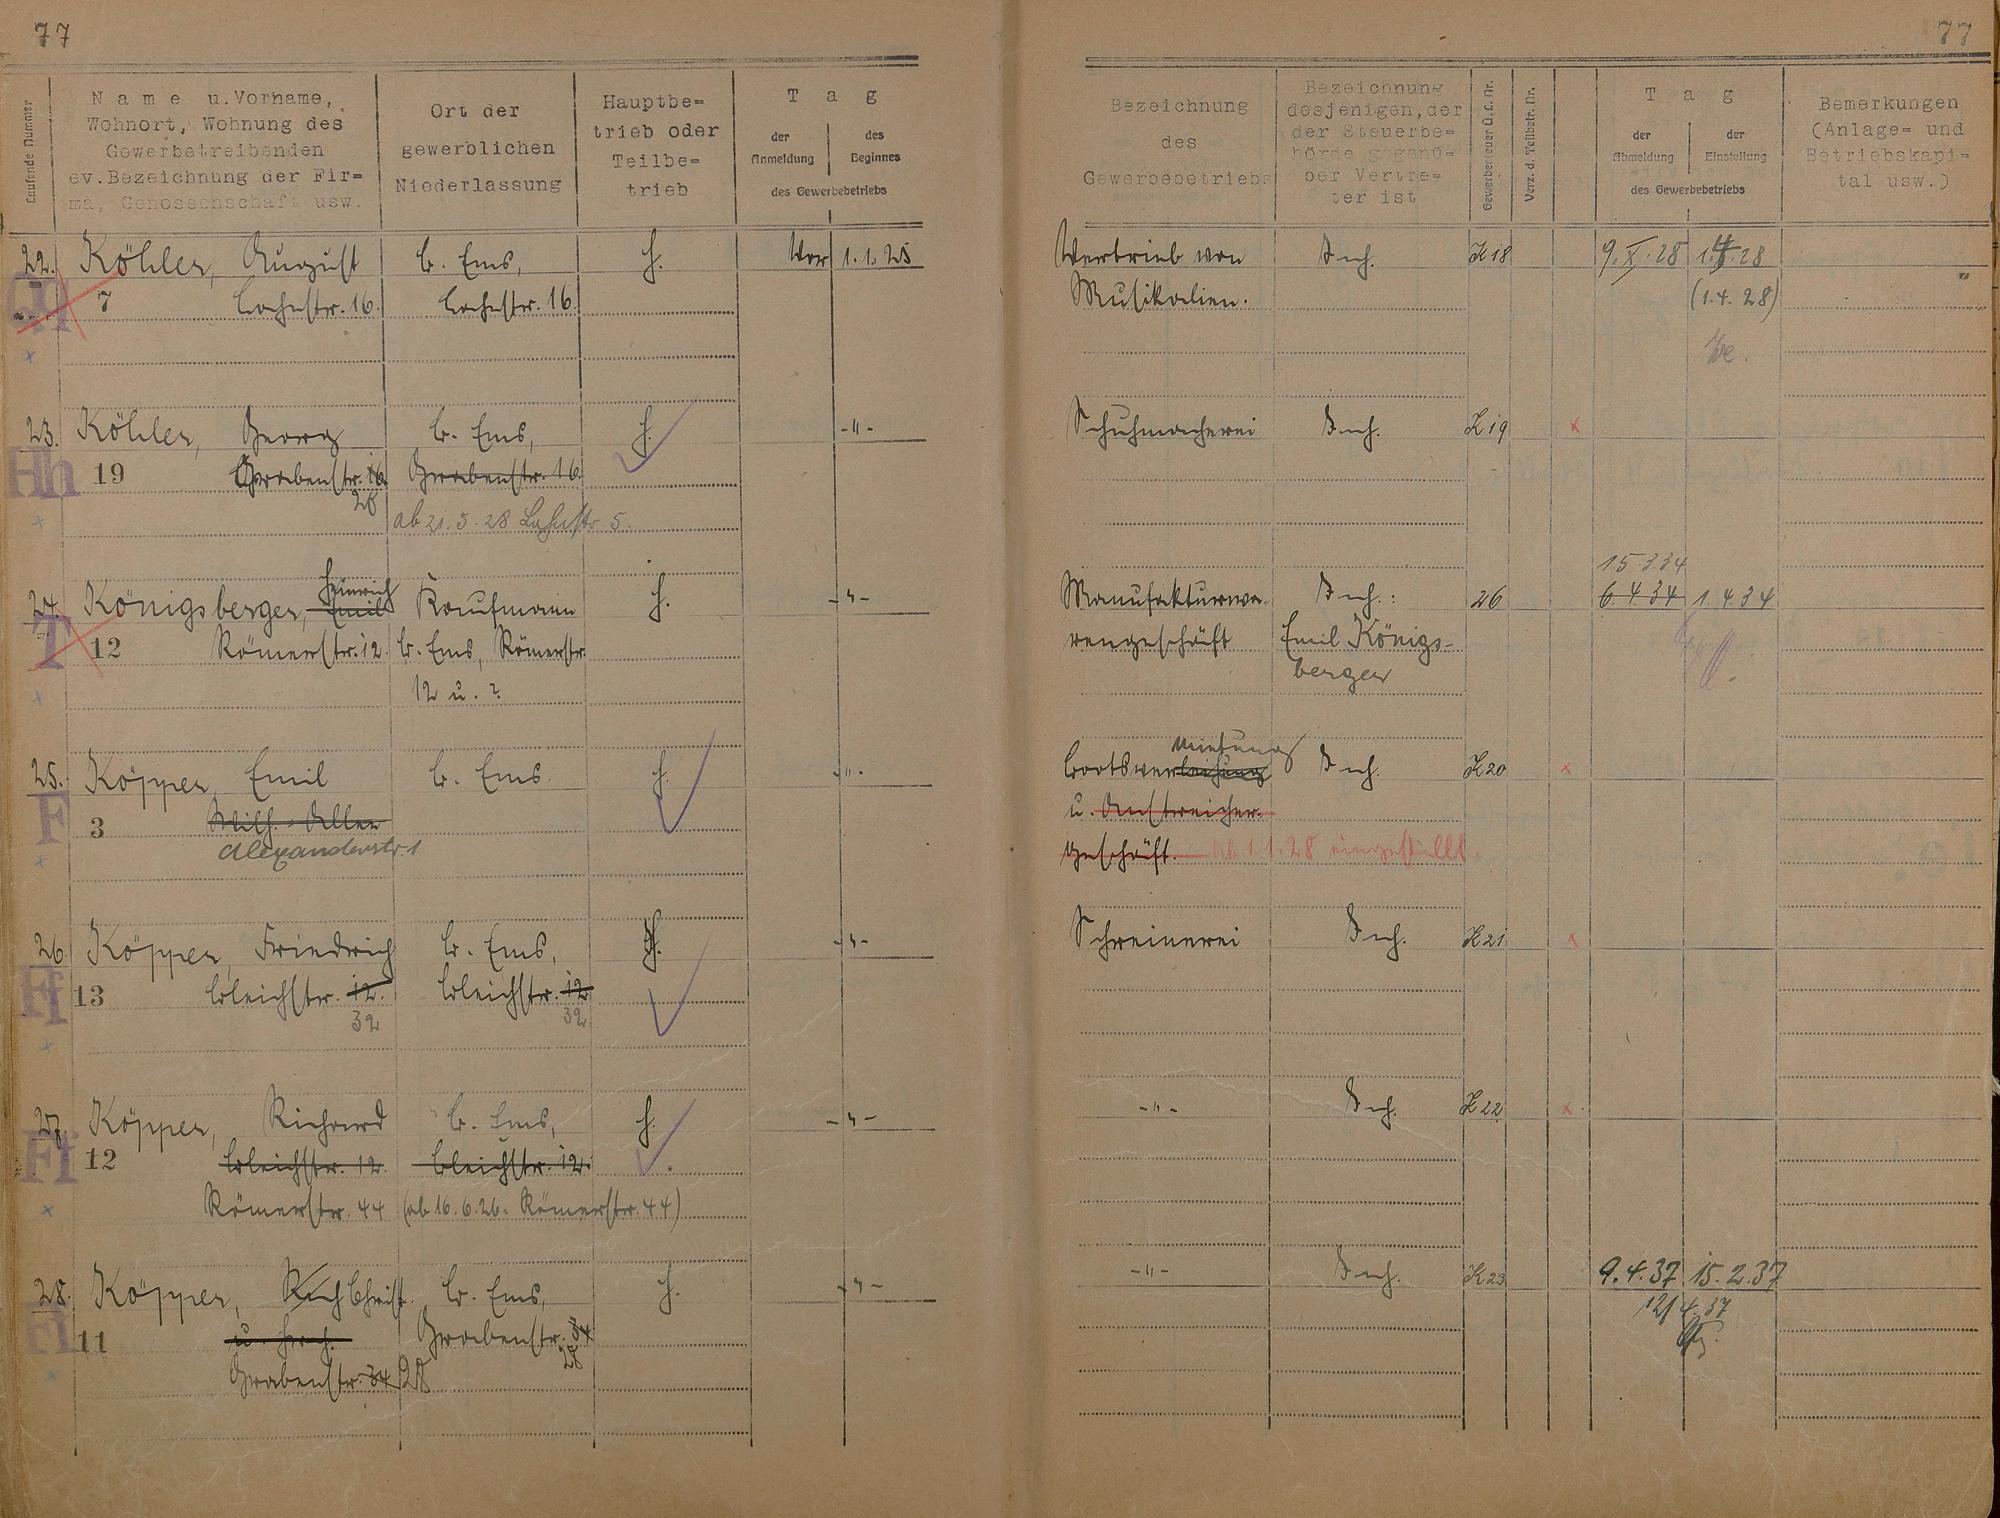 77
77
Laufende Nummer
Name u. Vorname,
Wohnort, Wohnung des
Gewerbetreibenden
ev. Bezeichnung der Fir=
ma, Genossenschaft usw.
Ort der
gewerblichen
Niederlassung
Hauptbe=
trieb oder
Teilbe=
trieb
Tag
der Anmeldung
des Beginnes
des Gewerbebetriebs
Bezeichnung
des
Gewerbebetriebs
Bezeichnung
desjenigen, der
der Steuerbe=
hörde gegenü=
ber Vertre=
ter ist
Gewerbesteuer Ü.L. Nr.
Verz. d. Teilbetr. Nr.
Tag
der Abmeldung
der Einstellung
des Gewerbebetriebs
Bemerkungen
(Anlage= und
Betriebskapi=
tal usw.)
22. Köhler, August B. Ems, H. Vor 1.1.25 Vertrieb von Inh. K 18 9.X.28 1.4.28
7 Lahnstr. 16. Lahnstr. 16. Musikalien. (1.4.28)
x
23. Köhler, Georg B. Ems, H. -"- Schuhmacherei Inh. K 19 x
Hh 19 Grabenstr. 16. Grabenstr. 16.
28
x ab 21.5.28 Lahnstr. 5.
Heinrich 15.3.34
24. Königsberger, Emil Kaufmann H. -"- Manufakturwa- Inh.: 26 6.4.34 1.4.34
T 12 Römerstr. 12. B. Ems, Römerstr. rengeschäft Emil Königs-
x 12 u. ? berger
mietung
25. Köpper, Emil B. Ems. H. -"- Bootsverleihung Inh. K 20 x
F 3 Wilh.-Allee u. Anstreicher-
x Alexanderstr. 1 geschäft. ab 1.1.28 eingestellt.
26. Köpper, Friedrich B. Ems, H. -"- Schreinerei Inh. K 21 x
Ff 13 Bleichstr. 12. Bleichstr. 12
32 32
x
27. Köpper, Richard B. Ems, H. -"- -"- Inh. K 22 x
Ff 12 Bleichstr. 12. Bleichstr. 12.
x Römerstr. 44 (ab 16.6.26. Römerstr. 44)
28. Köpper, Christ. B. Ems, H. -"- -"- Inh. K 23 9.4.37 15.2.37
Ff 11 Grabenstr. 34 12/4.37
28
x Grabenstr. 34 28